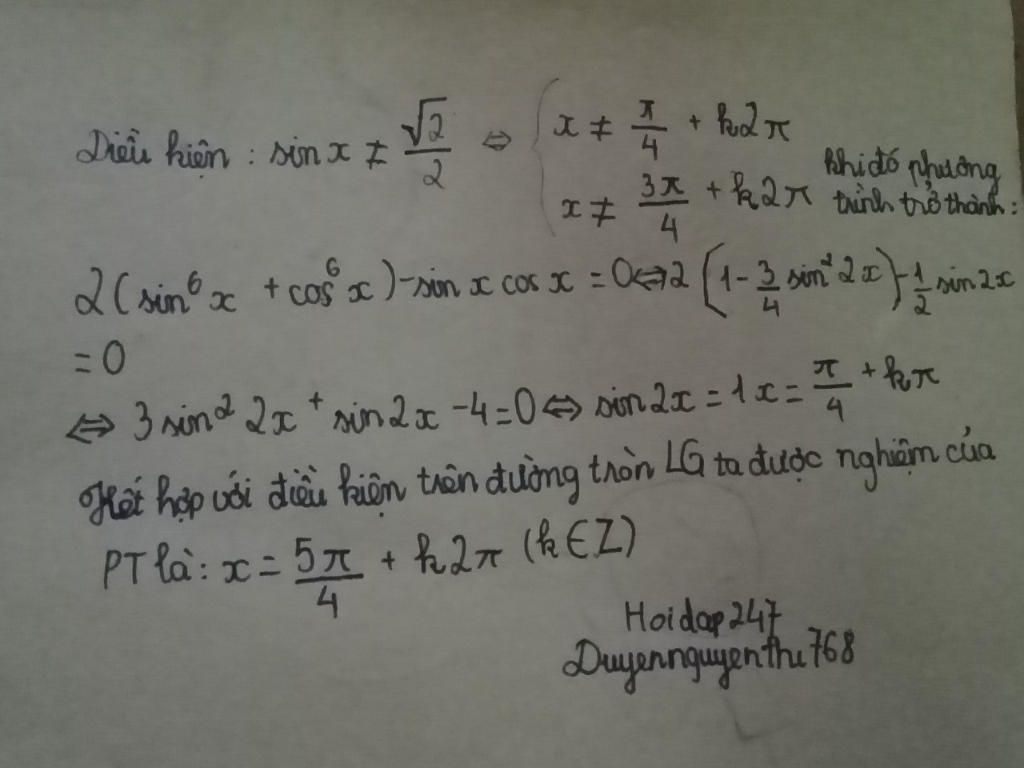 Điều kiện : sin x ≠ √2/2 ⇔ { x ≠ π/4 + k2π
x ≠ 3π/4 + k2π
khi đó phương
trình trở thành :
2(sin⁶x + cos⁶x) - sin x cos x = 0 ⇔ 2 (1 - 3/4 sin² 2x) - 1/2 sin 2x
= 0
⇔ 3 sin² 2x + sin 2x - 4 = 0 ⇔ sin 2x = 1 x = π/4 + kπ
Kết hợp với điều kiện trên đường tròn LG ta được nghiệm của
PT là : x = 5π/4 + k2π (k ∈ Z)
Hoidap247
Duyennguyenthu768